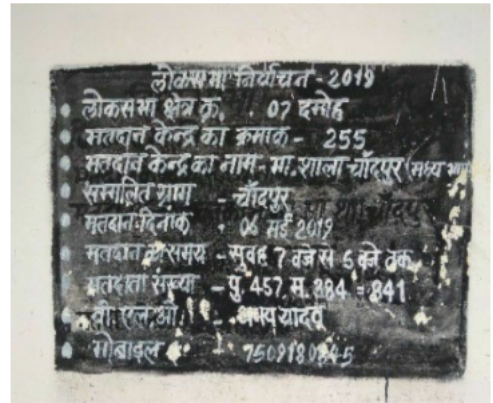 लोकसभा निर्वाचन - 2019
लोकसभा क्षेत्र क्र. 07 दमोह
मतदान केन्द्र का क्रमांक - 255
मतदान केन्द्र का नाम - मा. शाला चाँदपुर (मध्य भाग
सम्मलित भाग - चाँदपुर
मतदान दिनांक - 06 मई 2019
मतदान का समय - सुबह 7 बजे से 6 बजे तक
मतदाता संख्या - पु. 457 म. 384 = 841
बी एल ओ -
मोबाइल -